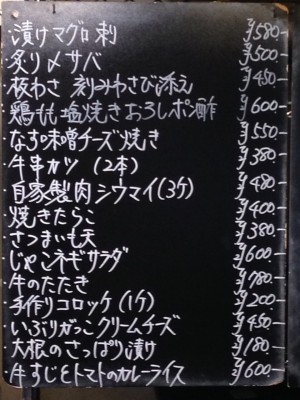 漬けマグロ刺 ¥580-
炙り〆サバ ¥500-
板わさ 刻みわさび添え ¥450-
鶏もも塩焼きおろしポン酢 ¥600-
なす味噌チーズ焼き ¥550-
牛串カツ(2本) ¥380-
自家製肉シウマイ(3ケ) ¥480-
焼きたらこ ¥400-
さつまいも天 ¥380-
じゃこネギサラダ ¥600-
牛のたたき ¥780-
手作りコロッケ(1ケ) ¥200-
いぶりがっこクリームチーズ ¥450-
大根のさっぱり漬け ¥180-
牛すじとトマトのカレーライス ¥600-